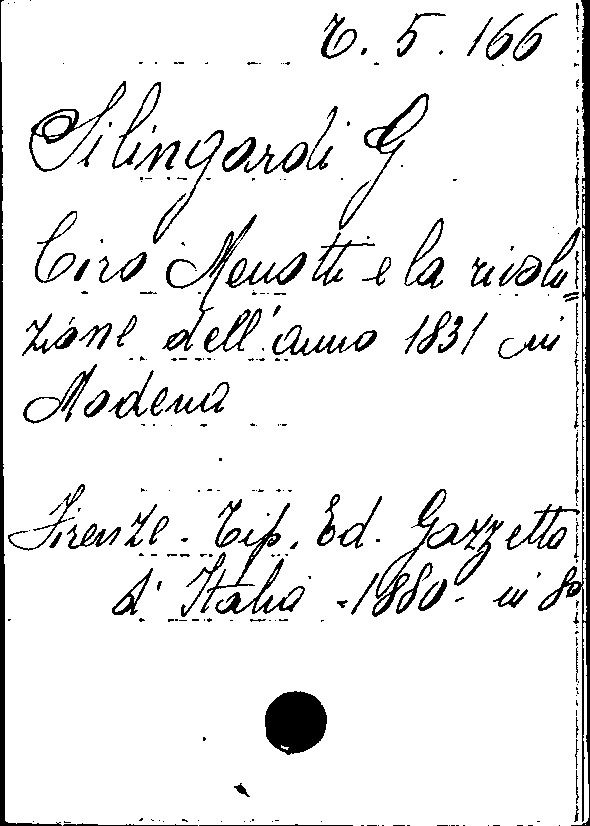 T. 5. 166
Silingardi G
Ciro Menotti e la rivolu=
zione dell'anno 1831 in
Modena
Firenze. Tip. Ed. Gazzetta
d'Italia - 1880 - in 8°